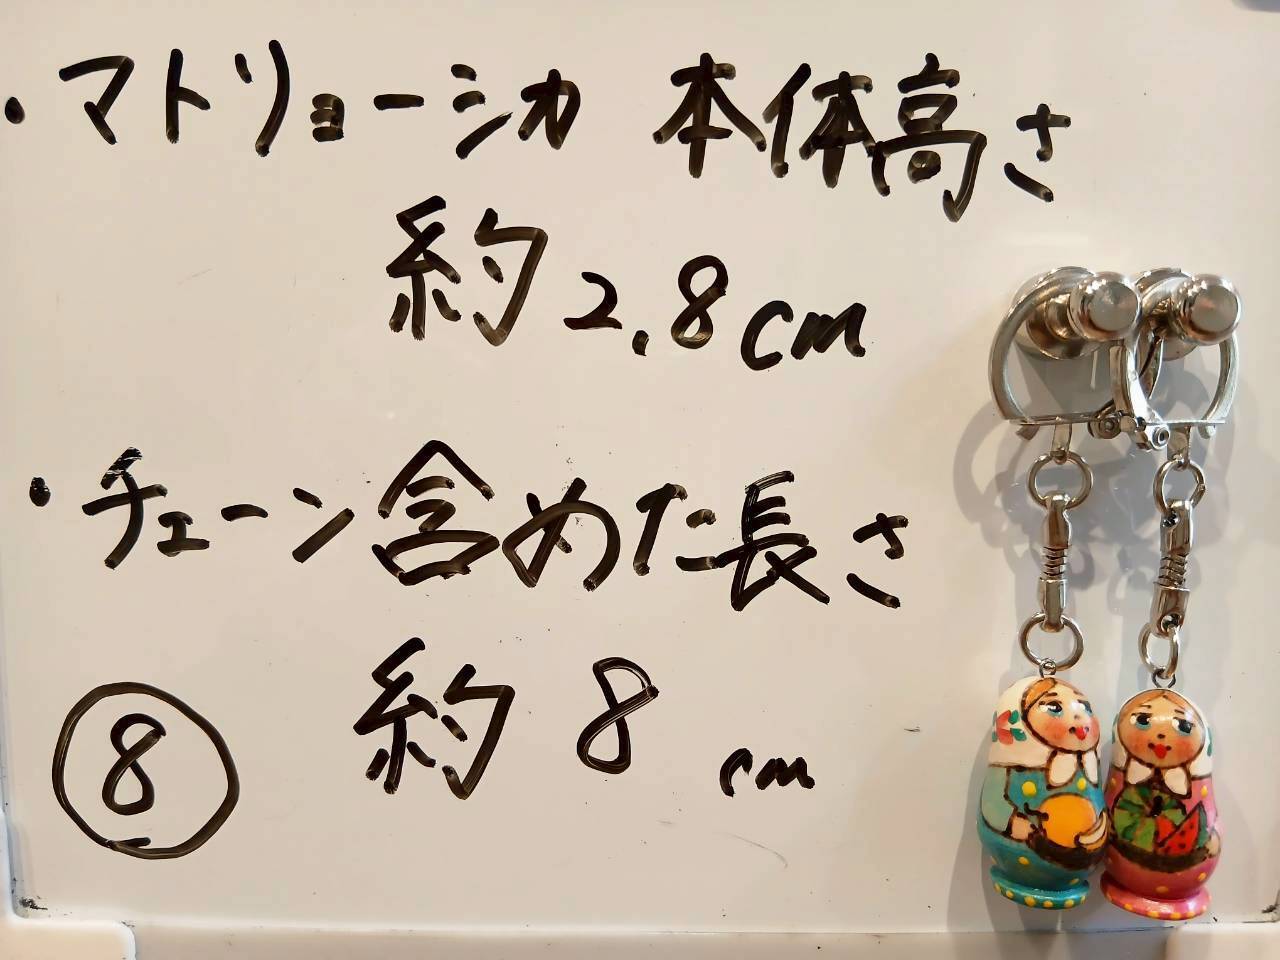 ・マトリョーシカ 本体高さ
約2.8cm
・チェーン含めた長さ
約 8 cm
⑧